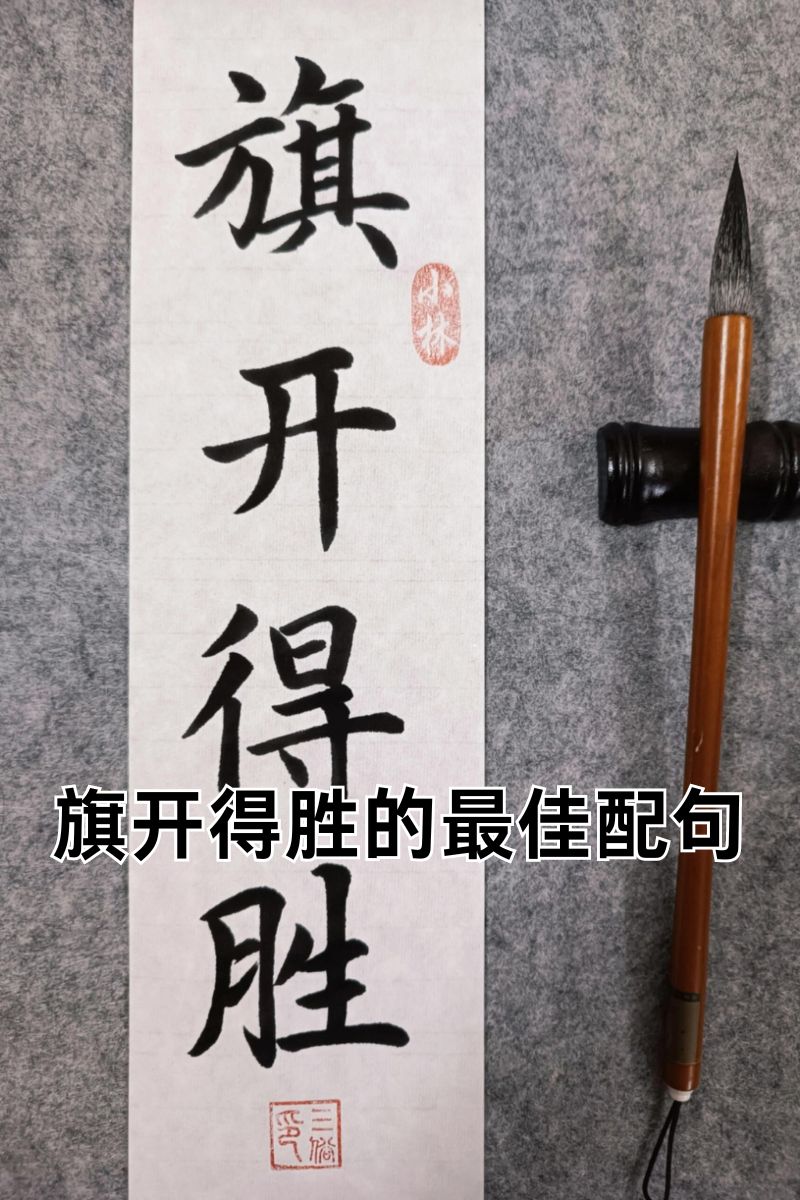 旗开得胜
小林
旗开得胜的最佳配句
三俗印